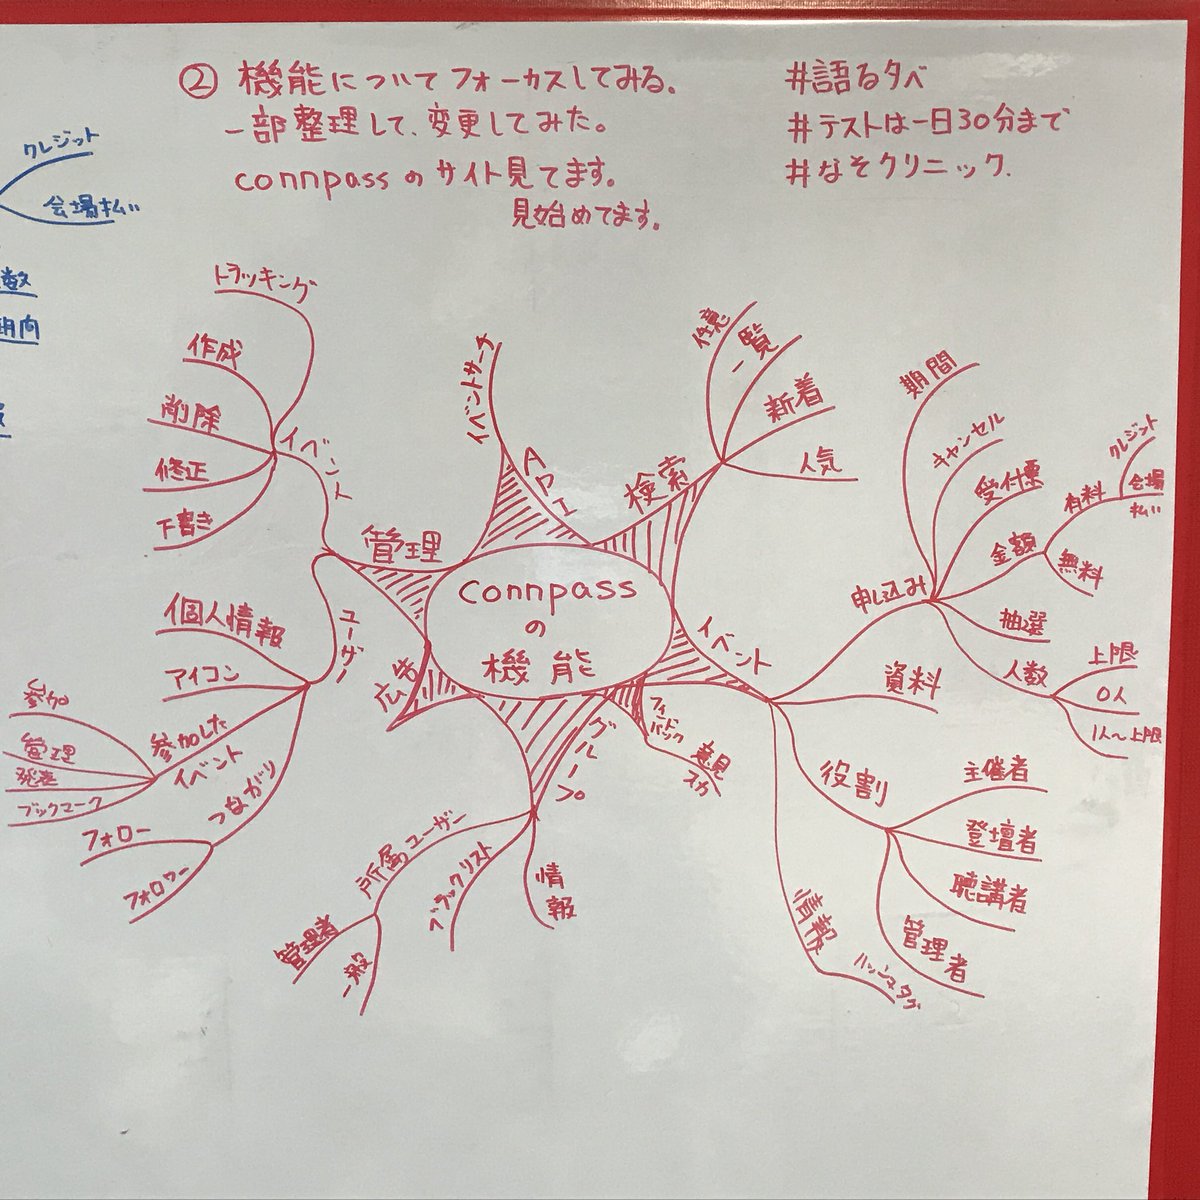 ② 機能についてフォーカスしてみる。
一部整理して、変更してみた。
connpassのサイト見てます。
見始めてます。
#語る夕べ
#テストは一日30分まで
#なそクリニック.
クレジット
会場払い
数
向
connpass
の
機能
管理
イベント
トラッキング
作成
削除
修正
下書き
ユーザー
個人情報
アイコン
参加した
イベント
参加
管理
発表
ブックマーク
つながり
フォロー
フォロワー
API
イベントサーチ
検索
任意
一覧
新着
人気
イベント
申し込み
期間
キャンセル
受付票
金額
有料
クレジット
会場
払い
無料
抽選
人数
上限
0人
1人〜上限
資料
役割
主催者
登壇者
聴講者
管理者
情報
ハッシュタグ
フィードバック
意見
グループ
所属ユーザー
管理者
一般
ブラックリスト
情報
広告